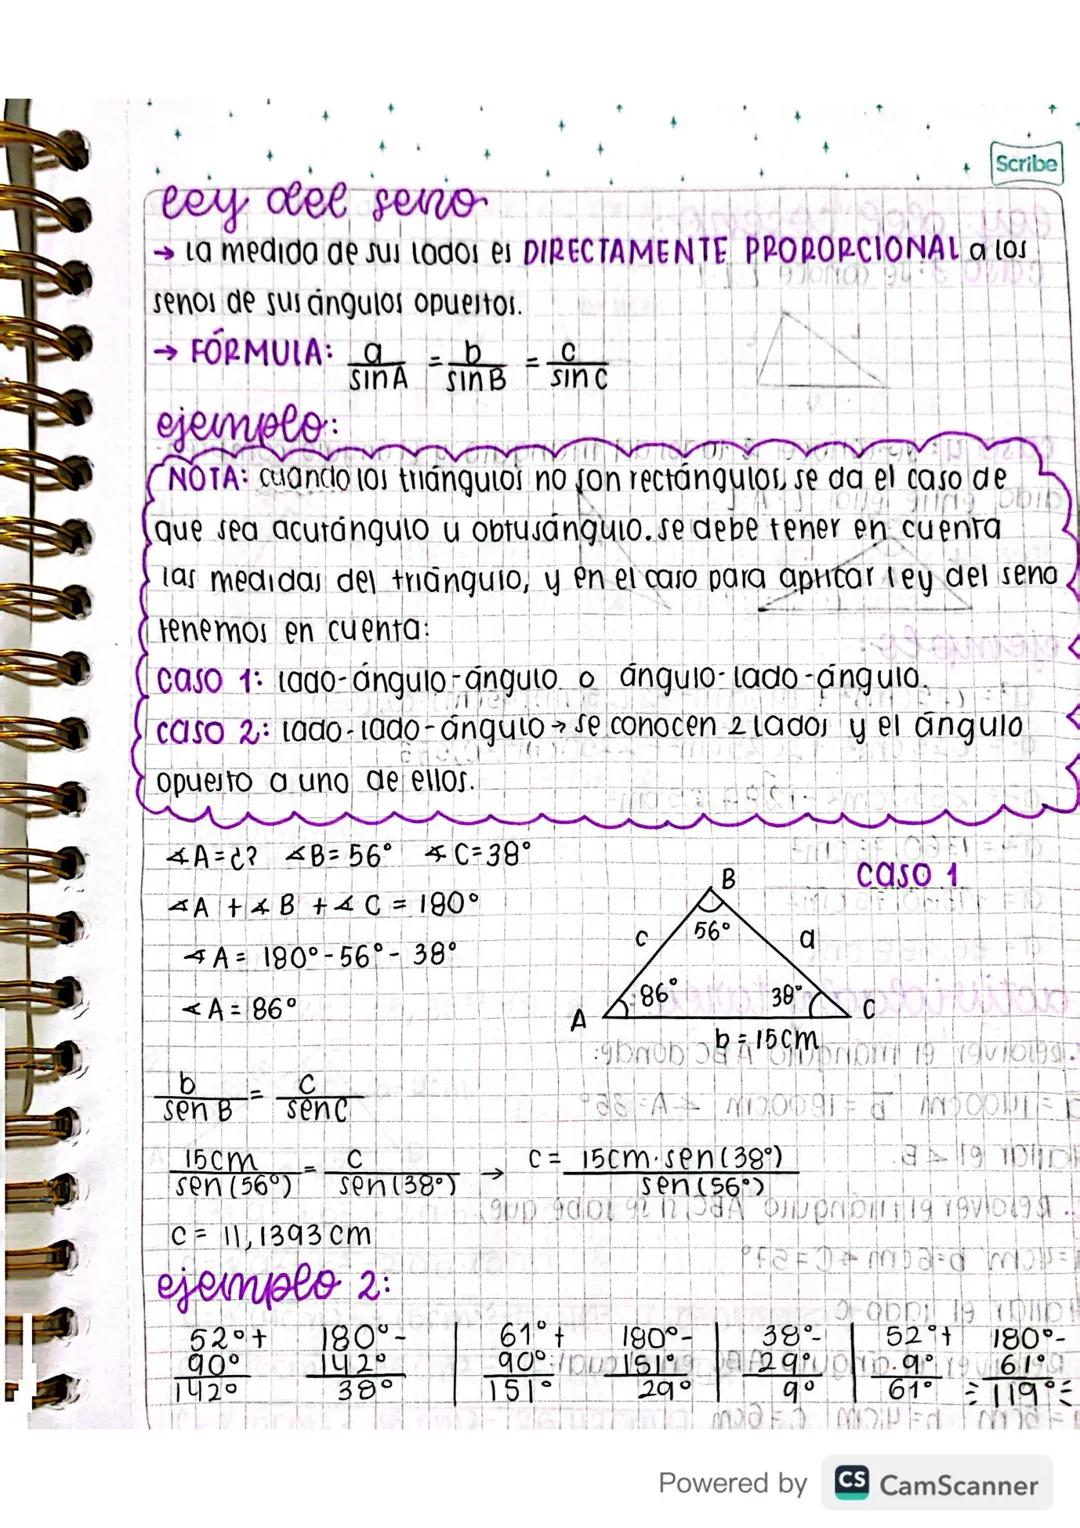 Scribe
ley del seno
→ la medida de sus lados es DIRECTAMENTE PROPORCIONAL a los
senos de sus ángulos opuestos.
→ FÓRMULA: a/sin A = b/sin B = c/sin C
ejemplo:
NOTA: cuando los triángulos no son rectángulos, se da el caso de
que sea acutángulo u obtusángulo. se debe tener en cuenta
las medidas del triángulo, y en el caso para aplicar ley del seno
tenemos en cuenta:
caso 1: lado-ángulo-ángulo o ángulo-lado-ángulo.
caso 2: lado-lado-ángulo → se conocen 2 lados y el ángulo
opuesto a uno de ellos.
∡A=¿? ∡B=56° ∡C=38°
caso 1
∡A + ∡B + ∡C = 180°
∡A = 180° - 56° - 38°
∡A = 86°
B
c 56° a
86° 38°
A C
b = 15cm
b/sen B = c/sen C
15cm/sen(56°) = c/sen(38°) → c = 15cm·sen(38°)/sen(56°)
c = 11,1393 cm
ejemplo 2:
52°+ 180°- 61°+ 180°- 38°- 52°+ 180°-
90° 142° 90° 151° 29° 9° 61°
142° 38° 151° 29° 9° 61° 119°
Powered by CS CamScanner